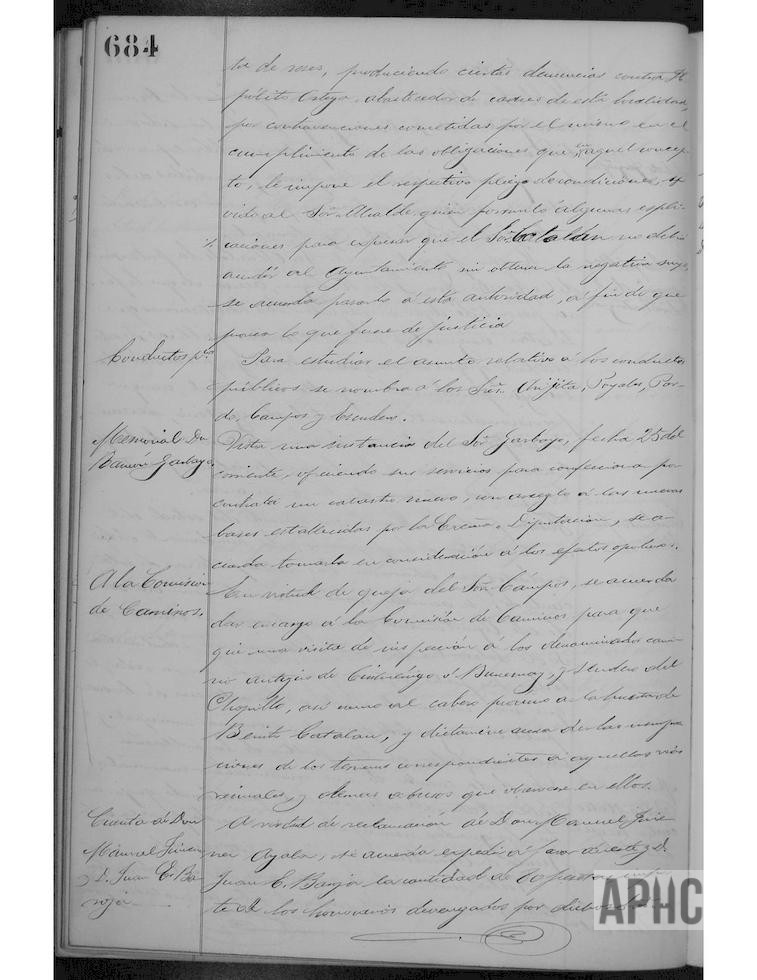 684
bre de reses, produciendo ciertas denuncias contra H
pólito Ortega, abastecedor de carnes de esta localidad,
por contravenciones cometidas por el mismo en el
cumplimiento de las obligaciones que en aquel concep-
to, le impone el respectivo pliego de condiciones, y
oido al Señ. Alcalde, quien formuló algunas espli-
caciones para espresar que el Señ. Catalán no debió
acudir al Ayuntamiento sin obtener la negativa suya,
se acuerda pasarlo á esta autoridad, á fin de que
provea lo que fuere de justicia
Conductos pcos
Para estudiar el asunto relativo á los conductos
públicos se nombra á los Señ. Poyales, Par-
do, Campos y Escudero.
Memorial Dn
Ramón Garbayo.
Vista una instancia del Señ. Garbayo, fecha 25 del
corriente, ofreciendo sus servicios para confeccionar por
contrata un catastro nuevo, con arreglo á las nuevas
bases establecidas por la Excma. Diputación, se a-
cuerda tomarla en consideración á los efectos oportunos.
A la Comisión
de Caminos.
En virtud de queja del Señ. Campos, se acuerda
dar encargo á la Comisión de Caminos para que
gire una visita de inspección á los denominados cami-
no antiguo de Cintruénigo y sendero del
así como al cabezo próximo a la huerta de
Benito Catalán, y dictamine acerca de las usurpa-
ciones de los terrenos correspondientes á aquellas vías
vecinales, y demas abusos que observase en ellos.
Cuenta de Don
Manuel Jimenez
y D. Juan E. Ba-
roja
A virtud de reclamación de Don Manuel Jime-
nez Ayala, se acuerda expedir á favor de este y D.
Juan E. Baroja la cantidad de pesetas impor-
te de los honorarios devengados por dichos
APHC